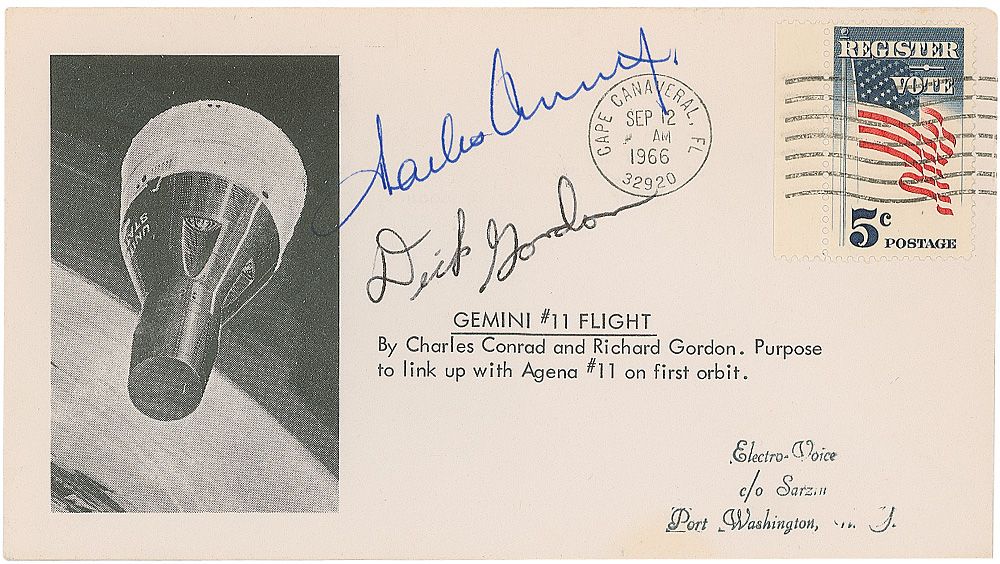 Charles Conrad Jr.
CAPE CANAVERAL, FL
SEP 12
AM
1966
32920
REGISTER
VOTE
5c POSTAGE
Dick Gordon
UNITED
STATES
GEMINI #11 FLIGHT
By Charles Conrad and Richard Gordon. Purpose
to link up with Agena #11 on first orbit.
Electro-Voice
c/o Sarzin
Port Washington,